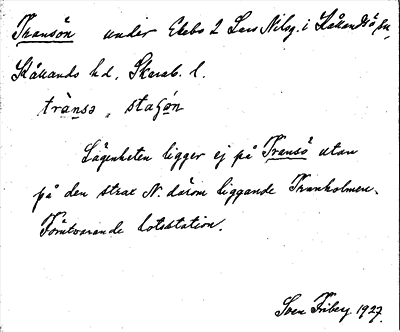 Transön under Ekebo 2 Lars Nilsg. i Kållandsö sn,
Kållands hd, Skarab. l.
trànsə, staʃón
Lägenheten ligger ej på Transö utan
på den strax N. därom liggande Tranholmen.
Förutvarande lotsstation.
Sven Friberg 1927.